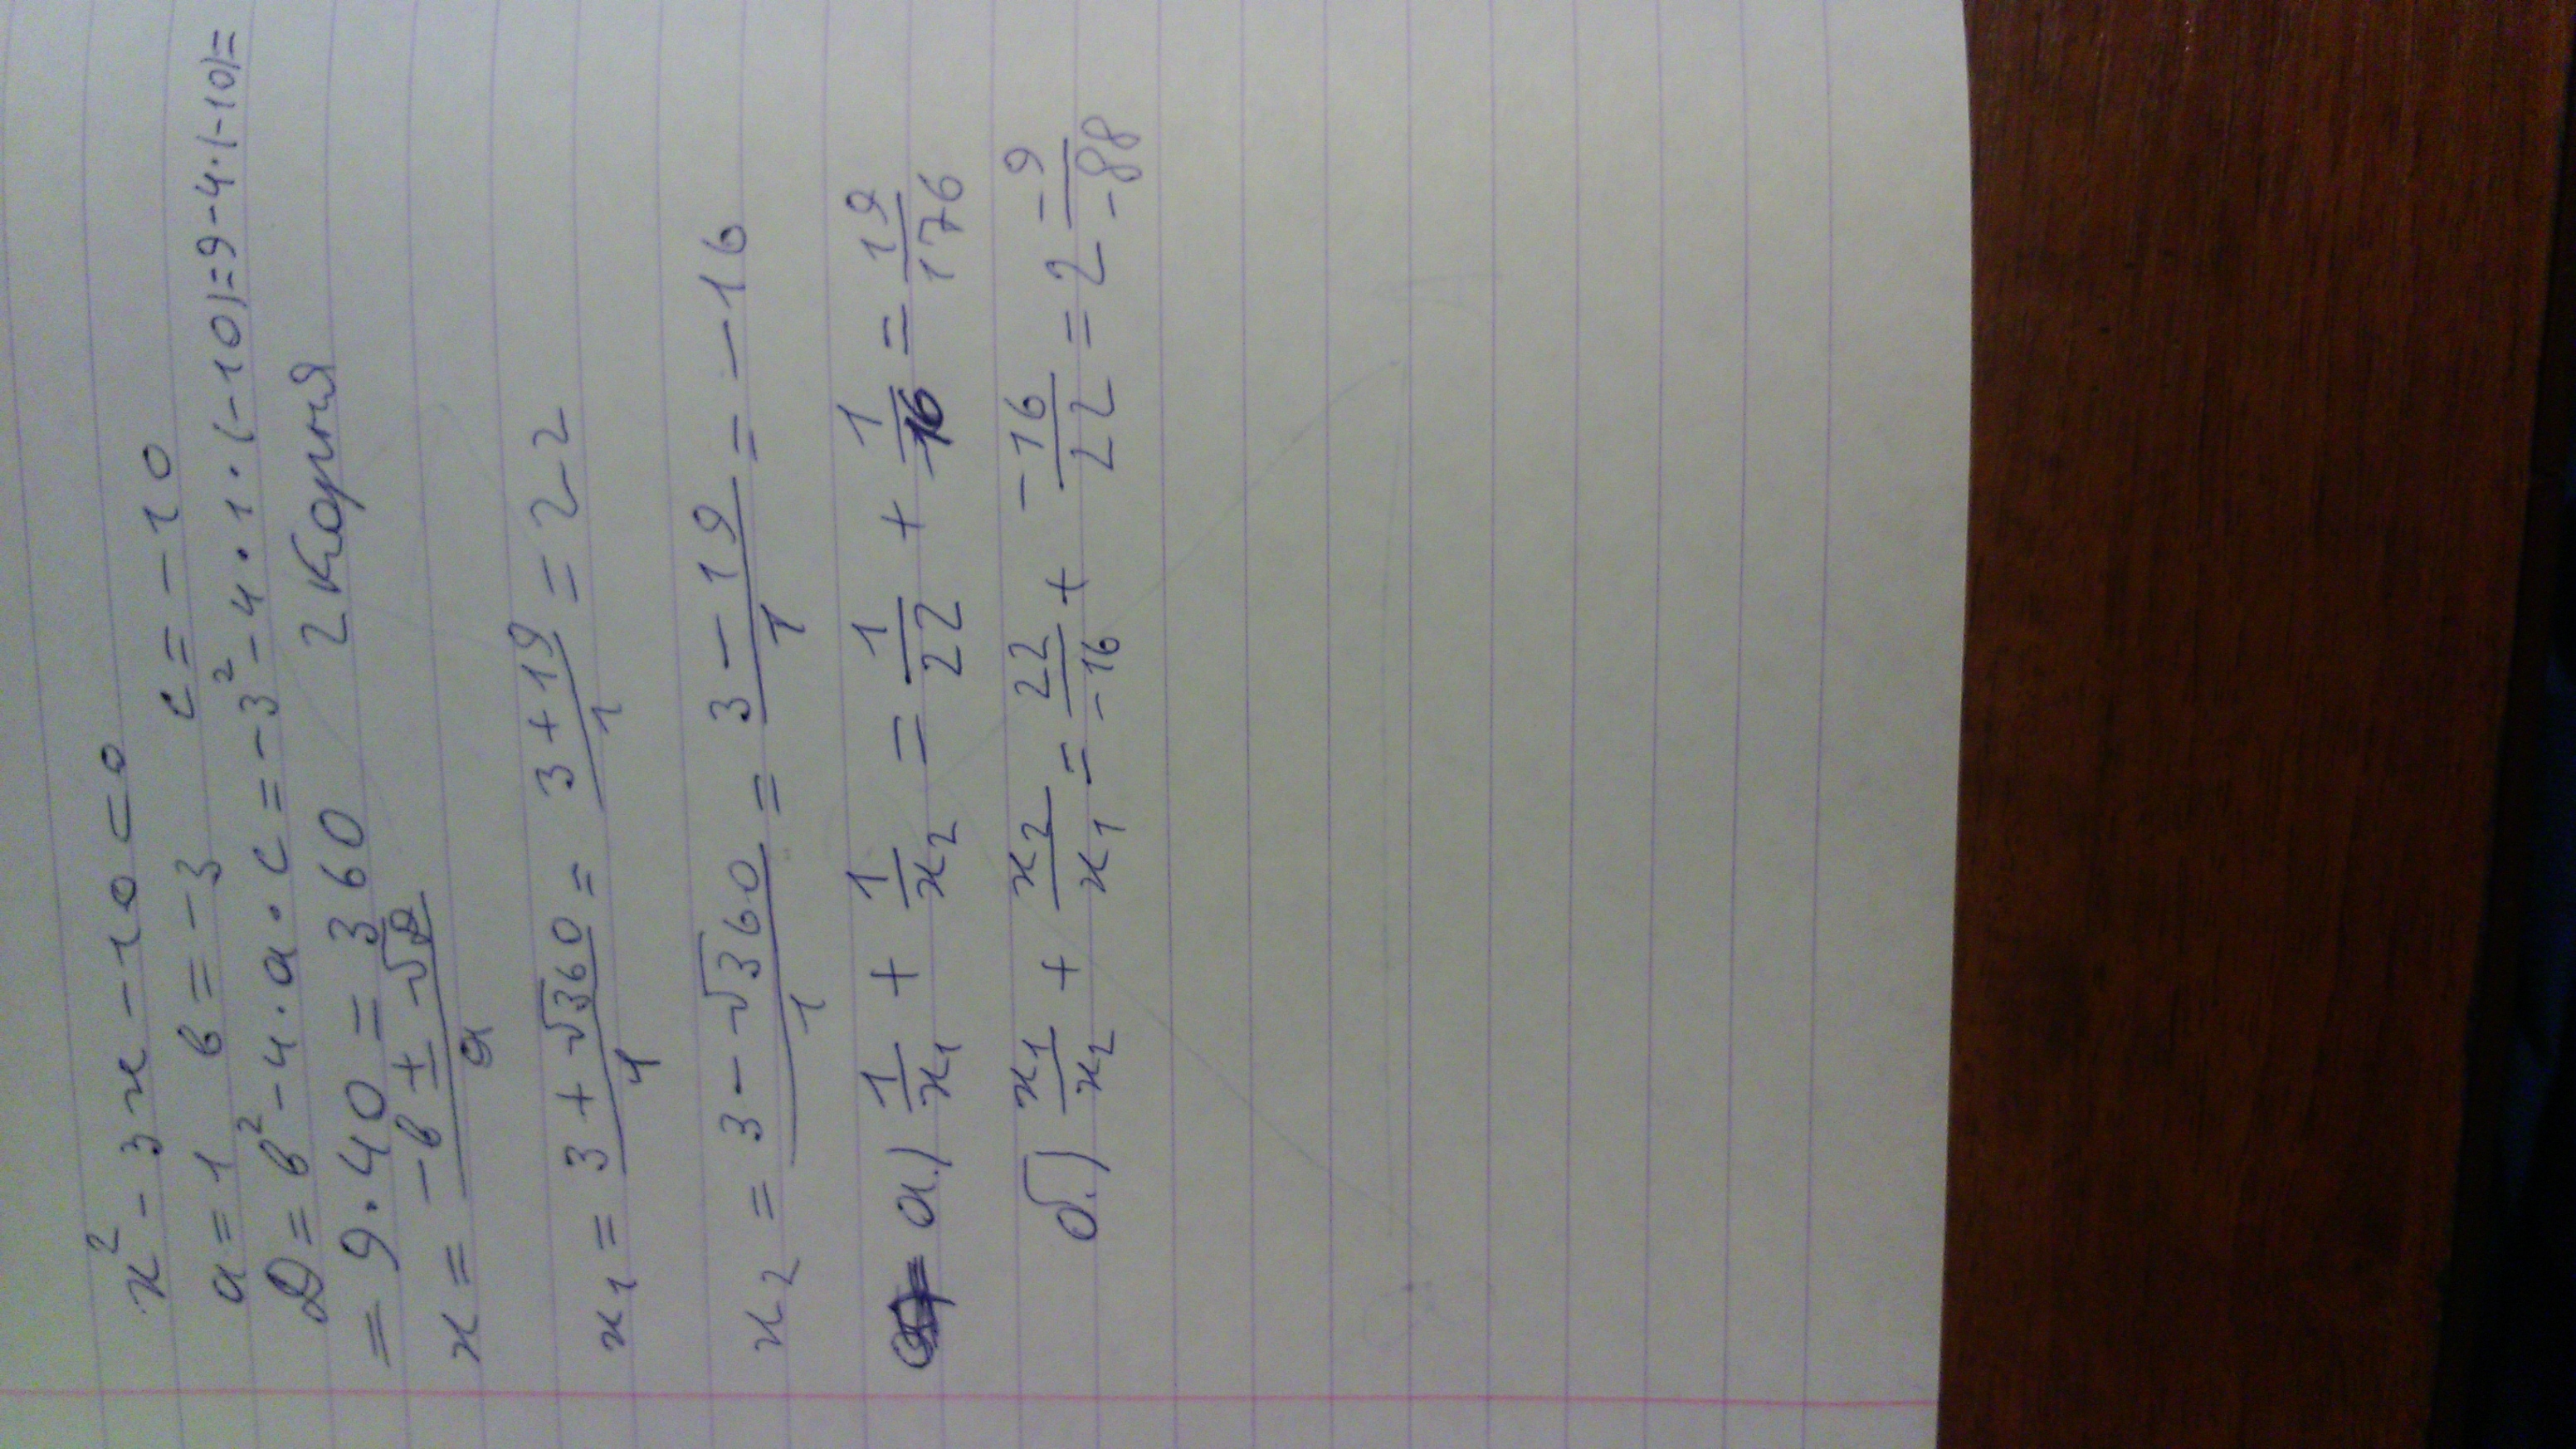 x² - 3x - 10 = 0
a = 1 b = -3 c = -10
D = b² - 4·a·c = -3² - 4·1·(-10) = 9 - 4·(-10) =
= 9·40 = 360 2 корня
x = (-b ± √D)/a
x₁ = (3 + √360)/1 = (3 + 19)/1 = 22
x₂ = (3 - √360)/1 = (3 - 19)/1 = -16
а.) 1/x₁ + 1/x₂ = 1/22 + 1/-16 = 19/176
б.) x₁/x₂ + x₂/x₁ = 22/-16 + -16/22 = 2 -9/-88